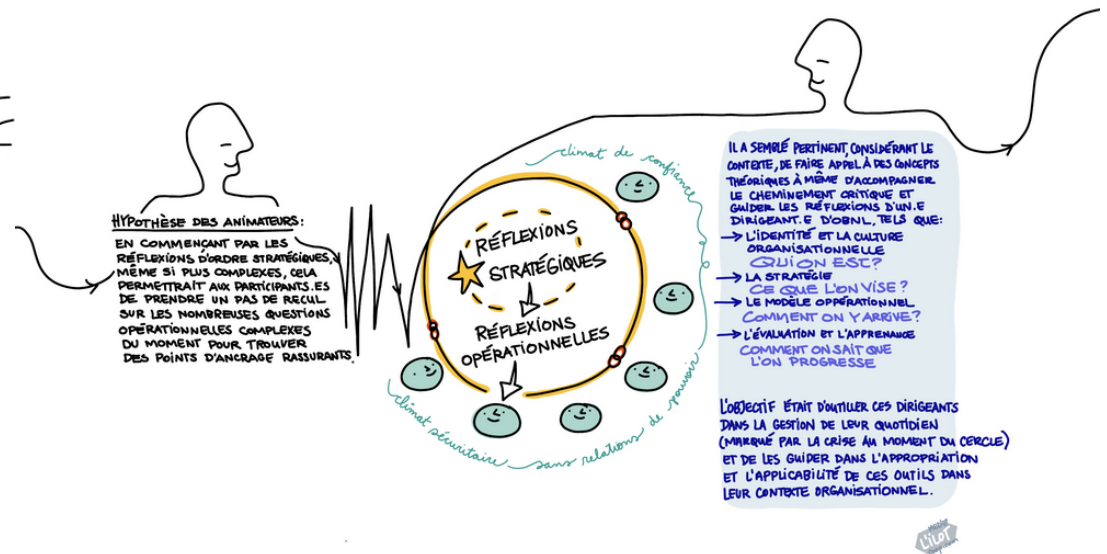 HYPOTHÈSE DES ANIMATEURS:
EN COMMENÇANT PAR LES
RÉFLEXIONS D'ORDRE STRATÉGIQUES,
MÊME SI PLUS COMPLEXES, CELA
PERMETTRAIT AUX PARTICIPANTS.ES
DE PRENDRE UN PAS DE RECUL
SUR LES NOMBREUSES QUESTIONS
OPÉRATIONNELLES COMPLEXES
DU MOMENT POUR TROUVER
DES POINTS D'ANCRAGE RASSURANTS.
climat de confiance
RÉFLEXIONS
STRATÉGIQUES
RÉFLEXIONS
OPÉRATIONNELLES
climat sécuritaire sans relations de pouvoir
IL A SEMBLÉ PERTINENT, CONSIDÉRANT LE
CONTEXTE, DE FAIRE APPEL À DES CONCEPTS
THÉORIQUES À MÊME D'ACCOMPAGNER
LE CHEMINEMENT CRITIQUE ET
GUIDER LES RÉFLEXIONS D'UN.E
DIRIGEANT.E D'OBNL, TELS QUE:
L'IDENTITÉ ET LA CULTURE
ORGANISATIONNELLE
QUI ON EST?
LA STRATÉGIE
CE QUE L'ON VISE?
LE MODÈLE OPPÉRATIONNEL
COMMENT ON Y ARRIVE?
L'ÉVALUATION ET L'APPRENANCE
COMMENT ON SAIT QUE
L'ON PROGRESSE
L'OBJECTIF ÉTAIT D'OUTILLER CES DIRIGEANTS
DANS LA GESTION DE LEUR QUOTIDIEN
(MARQUÉ PAR LA CRISE AU MOMENT DU CERCLE)
ET DE LES GUIDER DANS L'APPROPRIATION
ET L'APPLICABILITÉ DE CES OUTILS DANS
LEUR CONTEXTE ORGANISATIONNEL.
L'ILOT